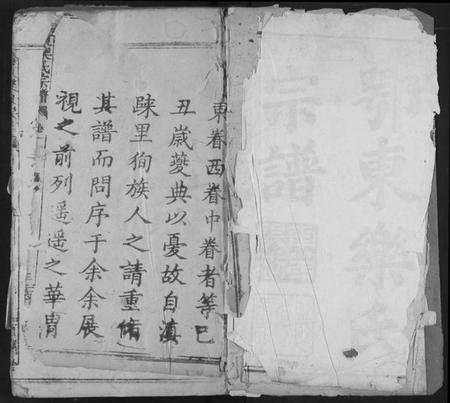 東眷西眷中眷者等己
丑歲夔典以憂故自滇
踈里狥族人之請重脩
其譜而問序于余余展
視之前列遥遥之華胄
氏宗譜
鄂東樂
宗譜